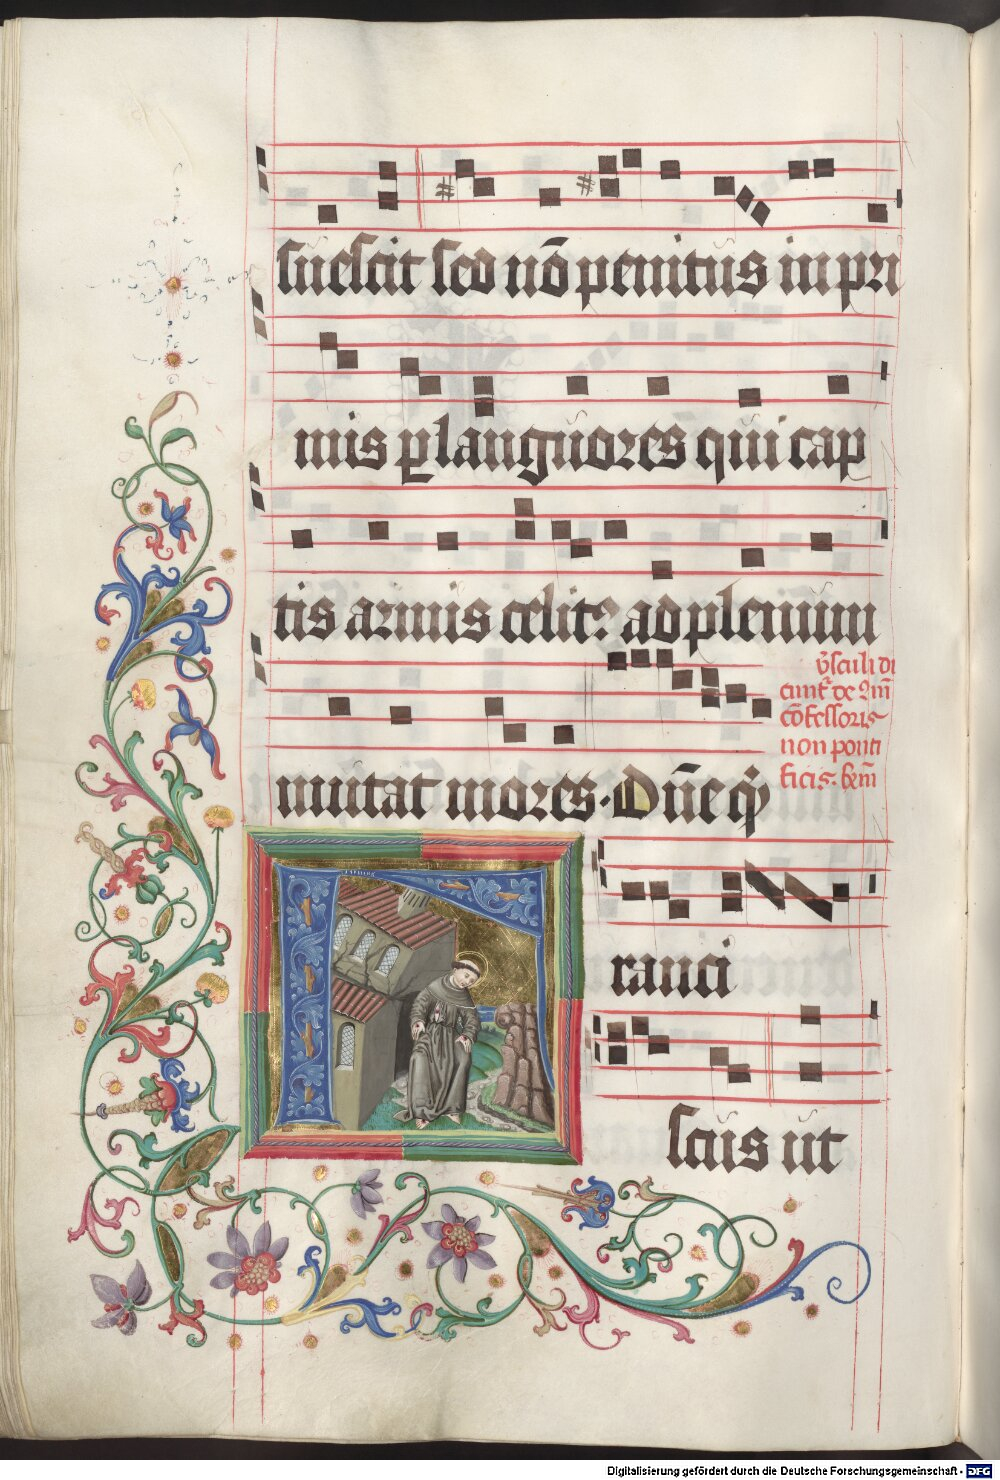 sůescit sed nō penitůs in pri
mis ꝑ langůores q̄ui cap
tis armis celitꝰ ad plenum
můtat mores. Dn̄e q̓
v̓sculi di
cunt᷑ de Im̄
cōfessoris
non ponti
ficis. bem̄
Franci
scůs ůt
Digitalisierung gefördert durch die Deutsche Forschungsgemeinschaft - DFG